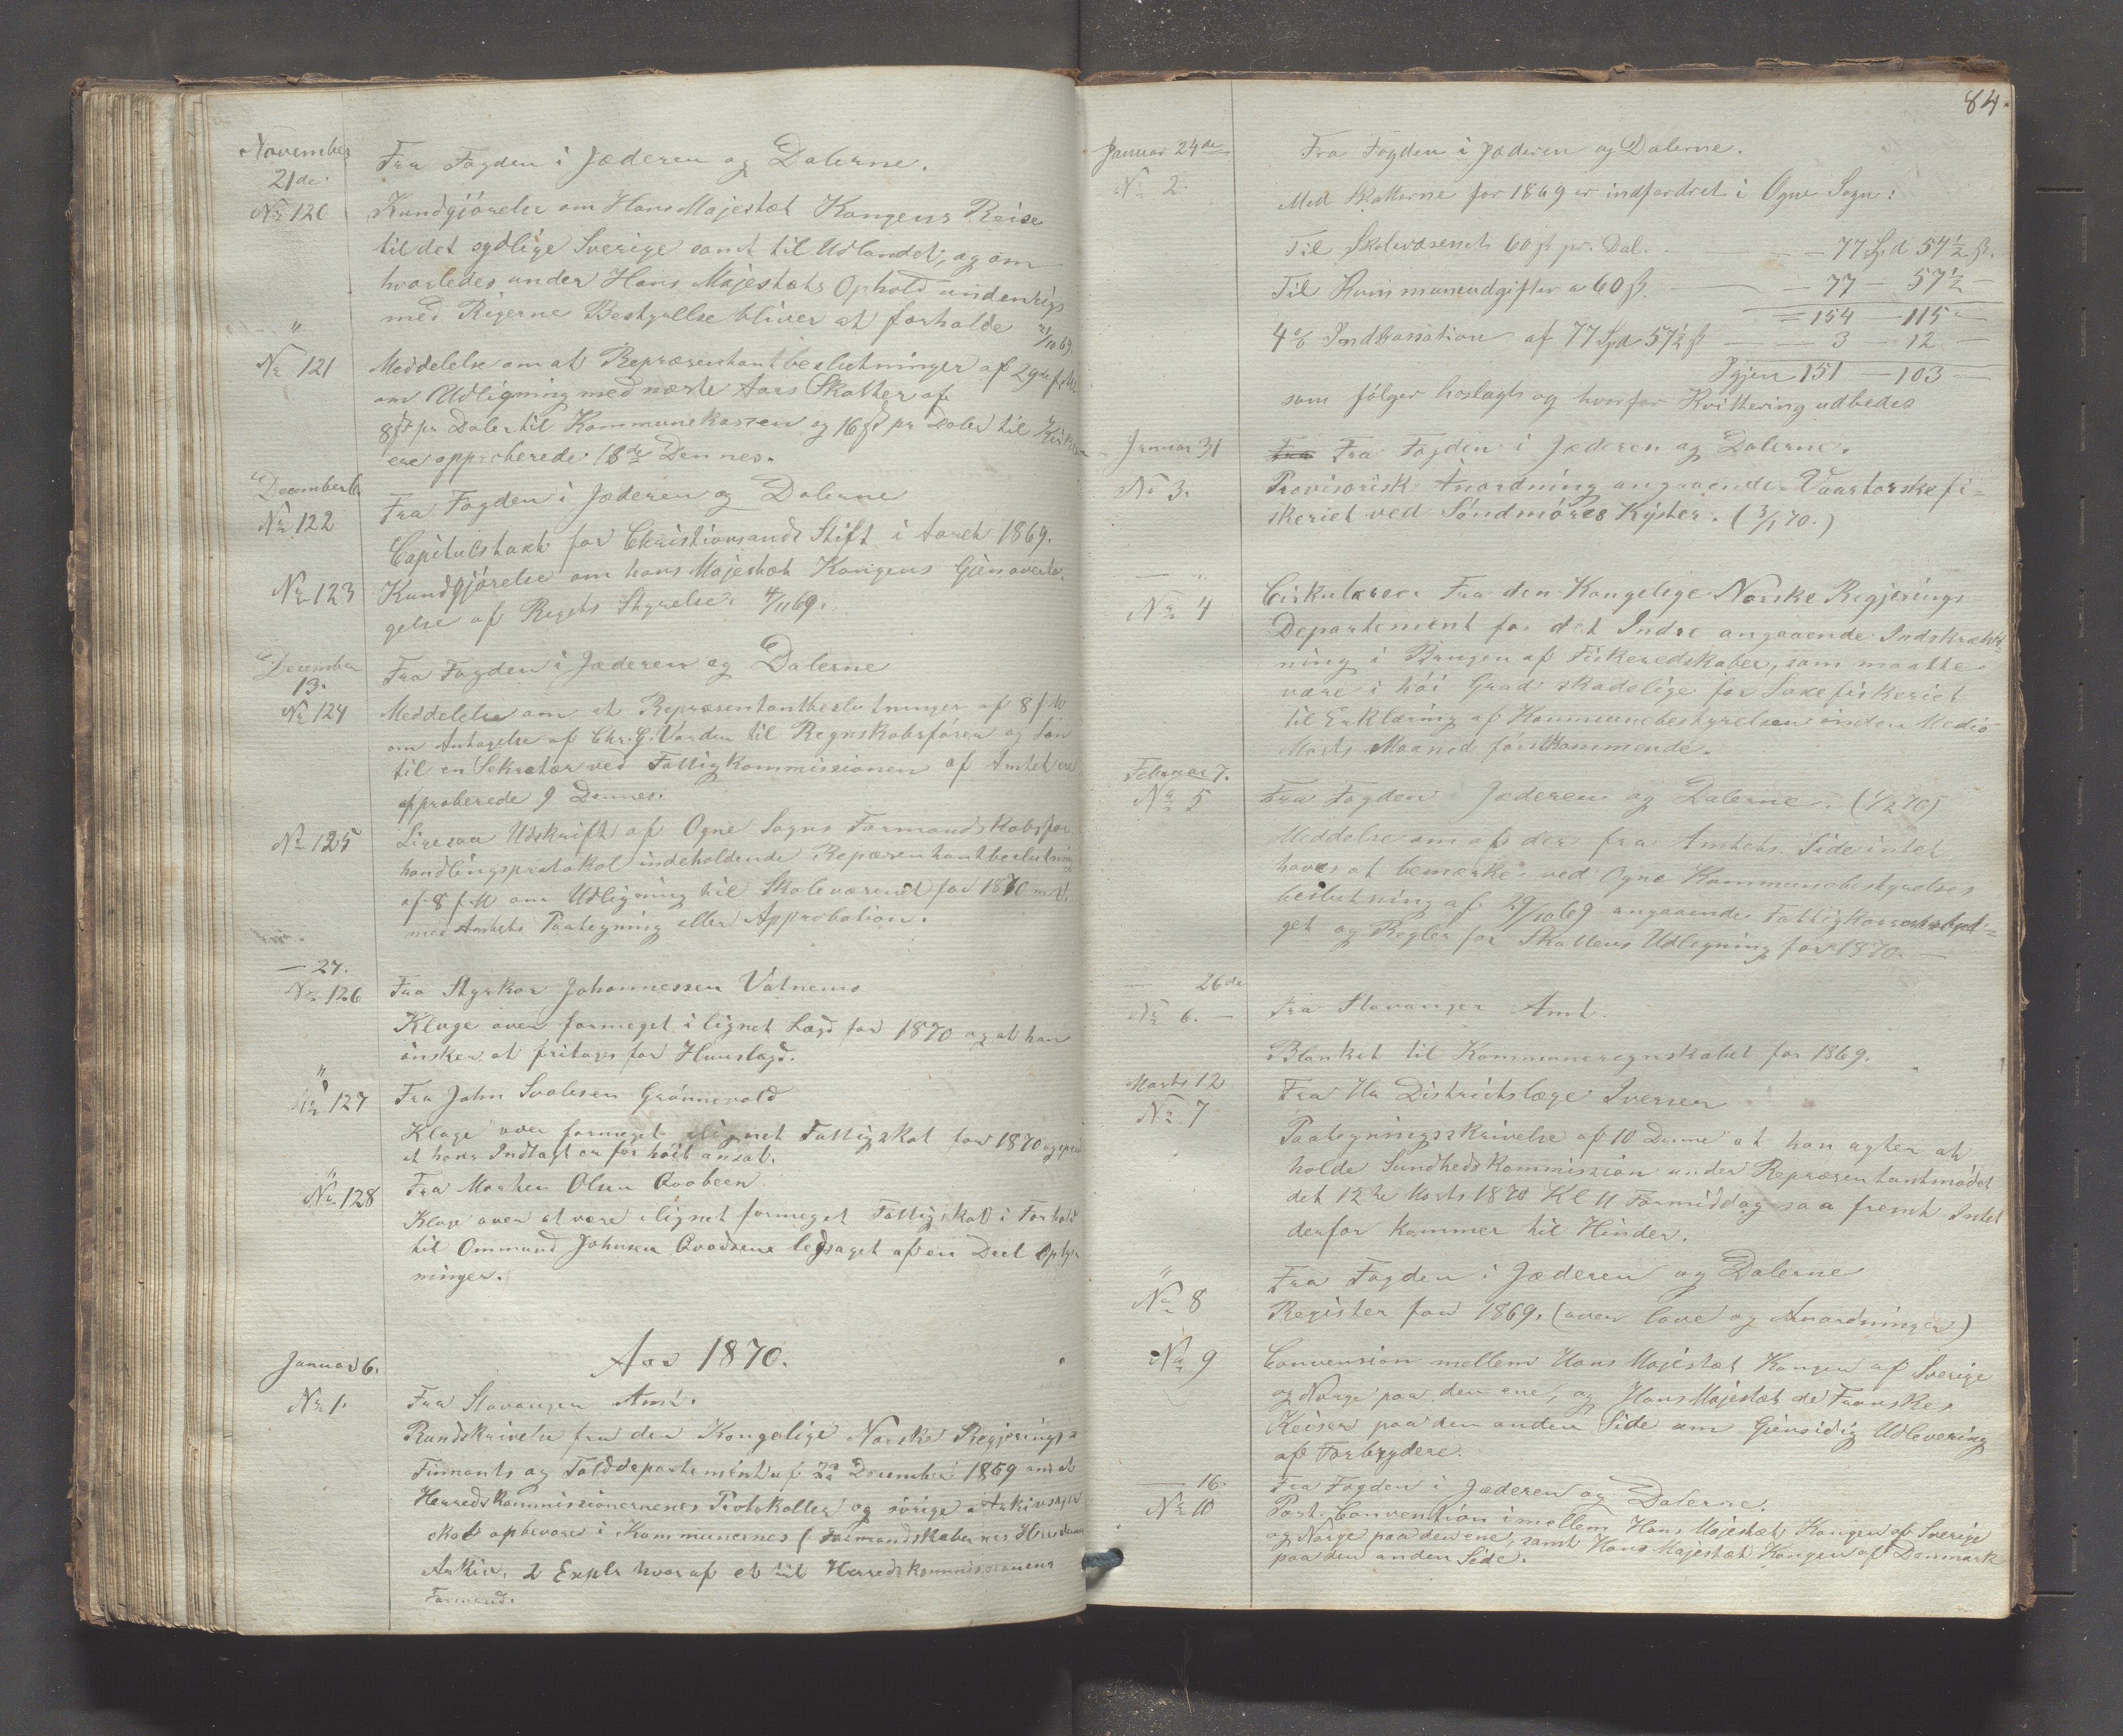 November
21de
No 120
Fra Fogden i Jæderen og Dalerne.
Kundgjörelse om Hans Majestæt Kongens Reise
til det sydlige Sverige samt til Udlandet, og om
hvorledes under Hans Majestæts Ophold udenrigs
med Rigerne Bestyrelse bliver at forholde 21/10 69.
"
No 121
Meddelelse om at Repræsentantbeslutninger af 29de f. M.
om Udligning med næste Aars Skatter af
8 ß pr Daler til Kommunekassen og 16 ß pr Daler til
ere approberede 18de Dennes.
December
No 122
Fra Fogden i Jæderen og Dalerne
Capitulstaxt for Christiansands Stift i Aaret 1869.
No 123
Kundgjörelse om hans Majestæt Kongens Gienoverta-
gelse af Rigets Styrelse. 4/11 69.
December
13.
No 124
Fra Fogden i Jæderen og Dalerne
Meddelelse om at Repræsentantbeslutninger af 8 f. M
om Antagelse af Chr. G. Varden til Regnskabsförer og Lön
til en Sekretær ved Fattigkommissionen af Amtet ere
approberede 9 Dennes.
No 125
Ligesaa Udskrift af Ogne Sogns Formandskabsfor-
handlingsprotokol indeholdende Repræsentantbeslutning
af 8 f. M om Udligning til Skolevæsenet for 1870 m. v.
med Amtets Paategning eller Approbation.
— 27.
No 126
Fra Styrkor Johannessen Vatnemo
Klage over formeget ilignet Lægd for 1870 og at han
önsker at fritages for Huuslægd.
"
No 127
Fra John Svalesen Grönnevold
Klage over formeget ilignet Fattigskat for 1870
at hans Indtægt er for höit ansat.
"
No 128
Fra Morten Olsen Qvobeen
Klage over at være ilignet formeget Fattigskat i Forhold
til Ommund Johnsen ledsaget af en Deel Oplys-
ninger.
Aar 1870.
Januar 6.
No 1.
Fra Stavanger Amt.
Rundskrivelse fra den Kongelige Norske Regjerings
Finants og Tolddepartement af December 1869 om at
Herredskommissionernes Protokoller og övrige Arkivsager
skal opbevares i Kommunernes (Formandskabernes
Arkiv. 2 Expls hvoraf et til Herredskommissionens
Formand.
84.
Januar 24de
No 2.
Fra Fogden i Jæderen og Dalerne.
Med Skatterne for 1869 er indfordret i Ogne Sogn:
Til Skolevæsenets 60 ß pr. Dal. — — 77 Spd 57½ ß.
Til Kommuneudgifter a 60 ß. — 77 — 57½ —
= 154 — 115 —
4 % Indkassation af 77 Spd 57½ ß — — 3 — 12 —
Igjen 151 — 103 —
som fölger hoslagt og hvorfor Kvittering udbedes
Januar 31
No 3.
Fra Fra Fogden i Jæderen og Dalerne.
Provisorisk Anordning angaaende Vaartorskefi-
skeriet ved Söndmöres Kyster. (3/1 70.)
— "
No 4
Cirkulære. Fra den Kongelige Norske Regjerings
Departement for det Indre angaaende Indskrænk-
ning i Brugen af Fiskeredskaber, som maatte
være i höi Grad skadelige for Laxefiskeriet
til Erklæring af Kommunebestyrelsen inden Medio
Marts Maaned förstkommende.
Februar 7.
No 5
Fra Fogden Jæderen og Dalerne. (1/2 70)
Meddelse om at der fra Amtets Side intet
haves at bemærke ved Ogne Kommunebestyrelses
beslutning af 29/10 69 angaaende
get og Regler for Skattens Udligning for 1870. —
26de
No 6. —
Fra Stavanger Amt.
Blanket til Kommuneregnskabet for 1869.
Marts 12
No 7
Fra Hr Distriktslæge Iversen
Paategningsskrivelse af 10 Denne at han agter at
holde Sundhedskommission under Repræsentantmödet
det 12te Marts 1870 Kl 11 Formiddag saa fremt Intet
derfor kommer til Hinder.
"
No 8
Fra Fogden i Jæderen og Dalerne
Register for 1869. (over love og Anordninger)
No 9
Convension mellem Hans Majestæt Kongen af Sverige
og Norge paa den ene, og Hans Majestæt de Franskes
Keiser paa den anden Side om Giensidig Udlevering
af Forbrydere.
— 16.
No 10
Fra Fogden i Jæderen og Dalerne.
Post. Convention imellem Hans Majestæt Kongen af Sverige
og Norge paa den ene, samt Hans Majestæt Kongen af Danmark
paa den anden Side.